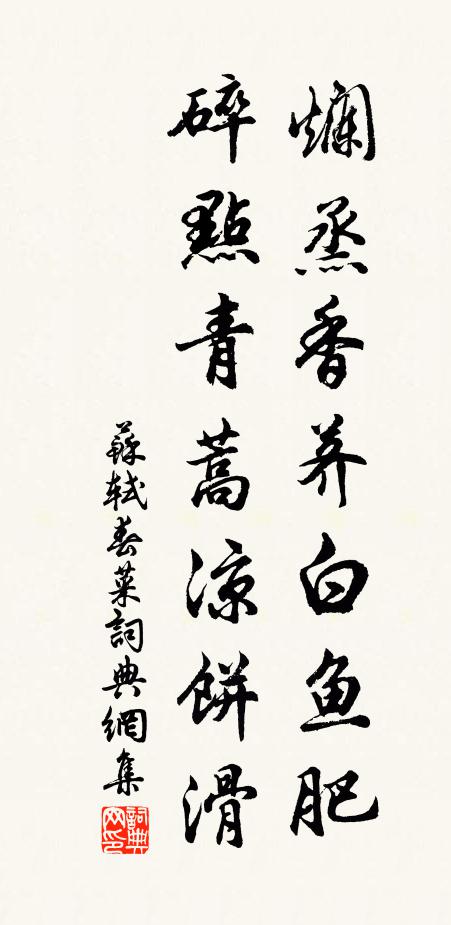 爛蒸香荠白鱼肥
碎點青蒿涼餅滑
蘇軾春菜詞典網集
詞典网印